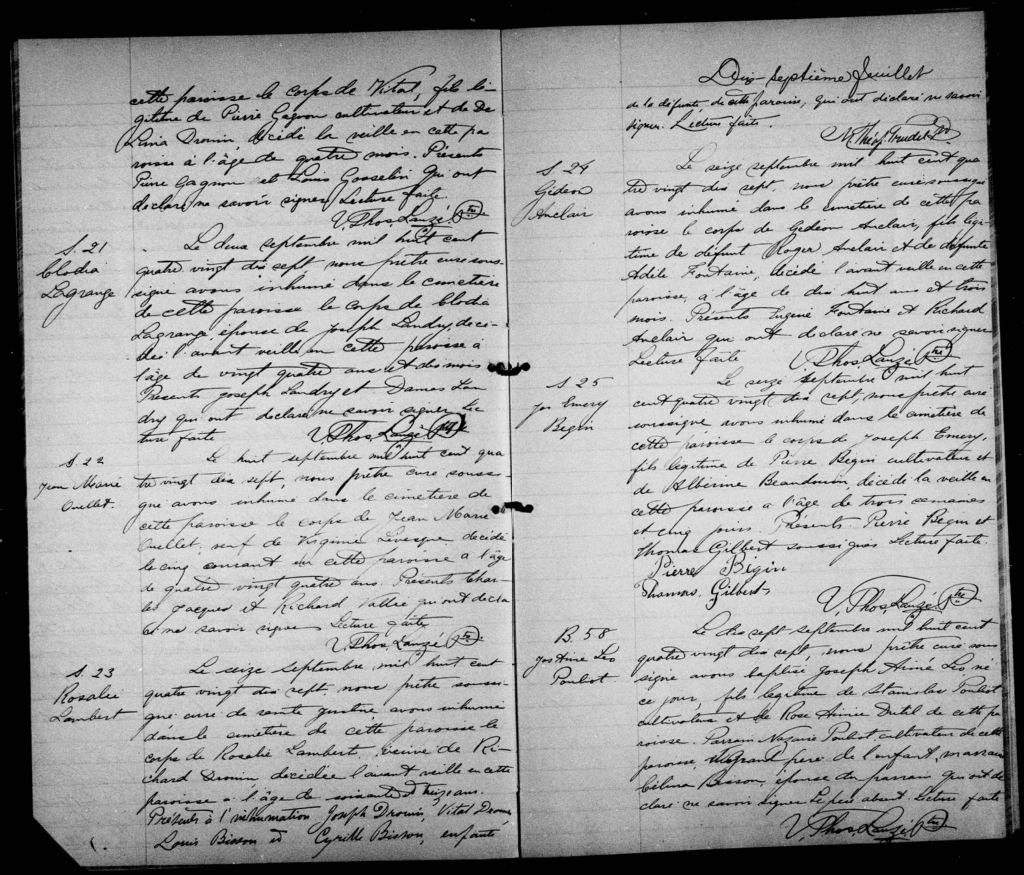 cette paroisse le corps de Vital, fils lé-
gitime de Pierre Gagnon cultivateur et de De
lima Drouin, décédé la veille en cette pa
roisse à l'âge de quatre mois. Présents
Pierre Gagnon et Louis Gosselin qui ont
declaré ne savoir signer Lecture faite.
V. Phos. Lauzé Ptre
S. 21
Clodia
Lagrange
Le deux septembre mil huit cent
quatre vingt dix sept, nous prêtre cure sous-
signé avons inhumé dans le cimetière
de cette paroisse le corps de Clodia
Lagrange épouse de Joseph Landry, déce-
dée l'avant veille en cette paroisse à
l'âge de vingt quatre ans et dix mois
Présents Joseph Landry et Damas Lan
dry qui ont declaré ne savoir signer Lec
ture faite
V. Phos Lauzé Ptre
S. 22
Jean Marie
Ouellet.
Le huit septembre mil huit cent qua
tre vingt dix sept, nous prêtre cure soussi
gné avons inhumé dans le cimetière de
cette paroisse le corps de Jean Marie
Ouellet, veuf de Virginie Lessque décédé
le cinq courant en cette paroisse à l'âge
de quatre vingt quatre ans. Présents Char-
les Jacques et Richard Vallée qui ont decla
ré ne savoir signer Lecture faite
V. Phos. Lauzé Ptre
S. 23
Rosalie
Lambert
Le seize septembre mil huit cent
quatre vingt dix sept, nous prêtre soussi-
gné curé de sainte Justine avons inhumé
dans le cimetière de cette paroisse le
corps de Rosalie Lambert, veuve de Ri-
chard Drouin decédée l'avant veille en cette
paroisse à l'âge de soixante et treize ans.
Présents à l'inhumation Joseph Drouin, Vital Drouin
Louis Bisson et Cyrille Bisson, enfants
Dix-septième feuillet
de la défunte, de cette paroisse, qui ont déclaré ne savoir
signer. Lecture faite.
N. Théop. Trudel Ptre
S. 24
Gédéon
Auclair
Le seize septembre mil huit cent qua
tre vingt dix sept, nous prêtre curé soussigné
avons inhumé dans le cimetière de cette pa
roisse le corps de Gédéon Auclair, fils légi
time de défunt Roger Auclair et de défunte
Adèle Fontaine, décédé l'avant veille en cette
paroisse, à l'âge de dix huit ans et trois
mois. Présents Eugène Fontaine et Richard
Auclair qui ont déclaré ne savoir signer
Lecture faite
V. Phos. Lauzé Ptre
S. 25
Jos Emery
Begin
Le seize septembre mil huit
cent quatre vingt dix sept, nous prêtre curé
soussigné avons inhumé dans le cimetière de
cette paroisse le corps de Joseph Emery,
fils légitime de Pierre Begin cultivateur et
de Albérine Beaudouin, décédé la veille en
cette paroisse à l'âge de trois semaines
et cinq jours. Présents Pierre Begin et
Thomas Gilbert soussignés Lecture faite.
Pierre Bégin
Thomas, Gilbert
V. Phos. Lauzé Ptre
B. 58
Jos Aimé Léo
Pouliot
Le dix sept septembre mil huit cent
quatre vingt dix sept, nous prêtre curé sous
signé avons baptisé Joseph Aimé Léo né
ce jour, fils légitime de Stanislas Pouliot
cultivateur et de Rose Aimée Dutil de cette pa
roisse. Parrain Nazaire Pouliot cultivateur de cette
paroisse, grand père de l'enfant, marraine
Célina Bisson, épouse du parrain qui ont dé
claré ne savoir signer Le père absent Lecture faite
V. Phos Lauzé Ptre